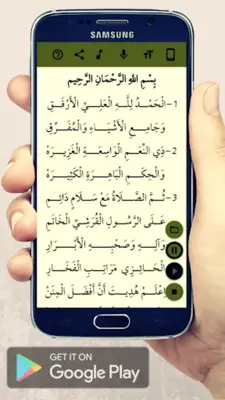 SAMSUNG
بِسْمِ اللهِ الرَّحْمَانِ الرَّحِيم
1 - الْحَمْدُ لِلَّهِ الْعَلِيِّ الْأَرْفَقِ
وَجَامِعِ الْأَشْيَاءِ وَالْمُفَرِّقِ
2 - ذِي النِّعَمِ الْوَاسِعَةِ الْغَزِيرَهْ
وَالْحِكَمِ الْبَاهِرَةِ الْكَثِيرَهْ
3 - ثُمَّ الصَّلَاةُ مَعْ سَلَامٍ دَائِمِ
عَلَى الرَّسُولِ الْقُرَشِيِّ الْخَاتَمِ
وَآلِهِ وَصَحْبِهِ الْأَبْرَارِ
الْحَائِزِي مَرَاتِبَ الْفَخَارِ
اِعْلَمْ هُدِيتَ أَنَّ أَفْضَلَ الْمِنَنِ
GET IT ON
Google Play